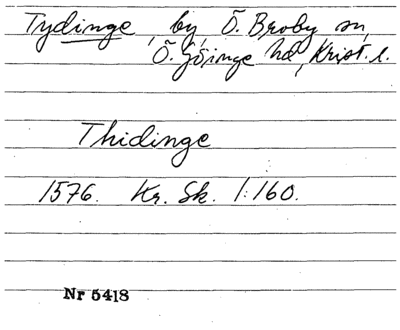 Tydinge, by, Ö. Broby sn,
Ö. Göinge hd, Krist. l.
Thidinge
1576. Kr. Sk. 1:160.
Nr 5418